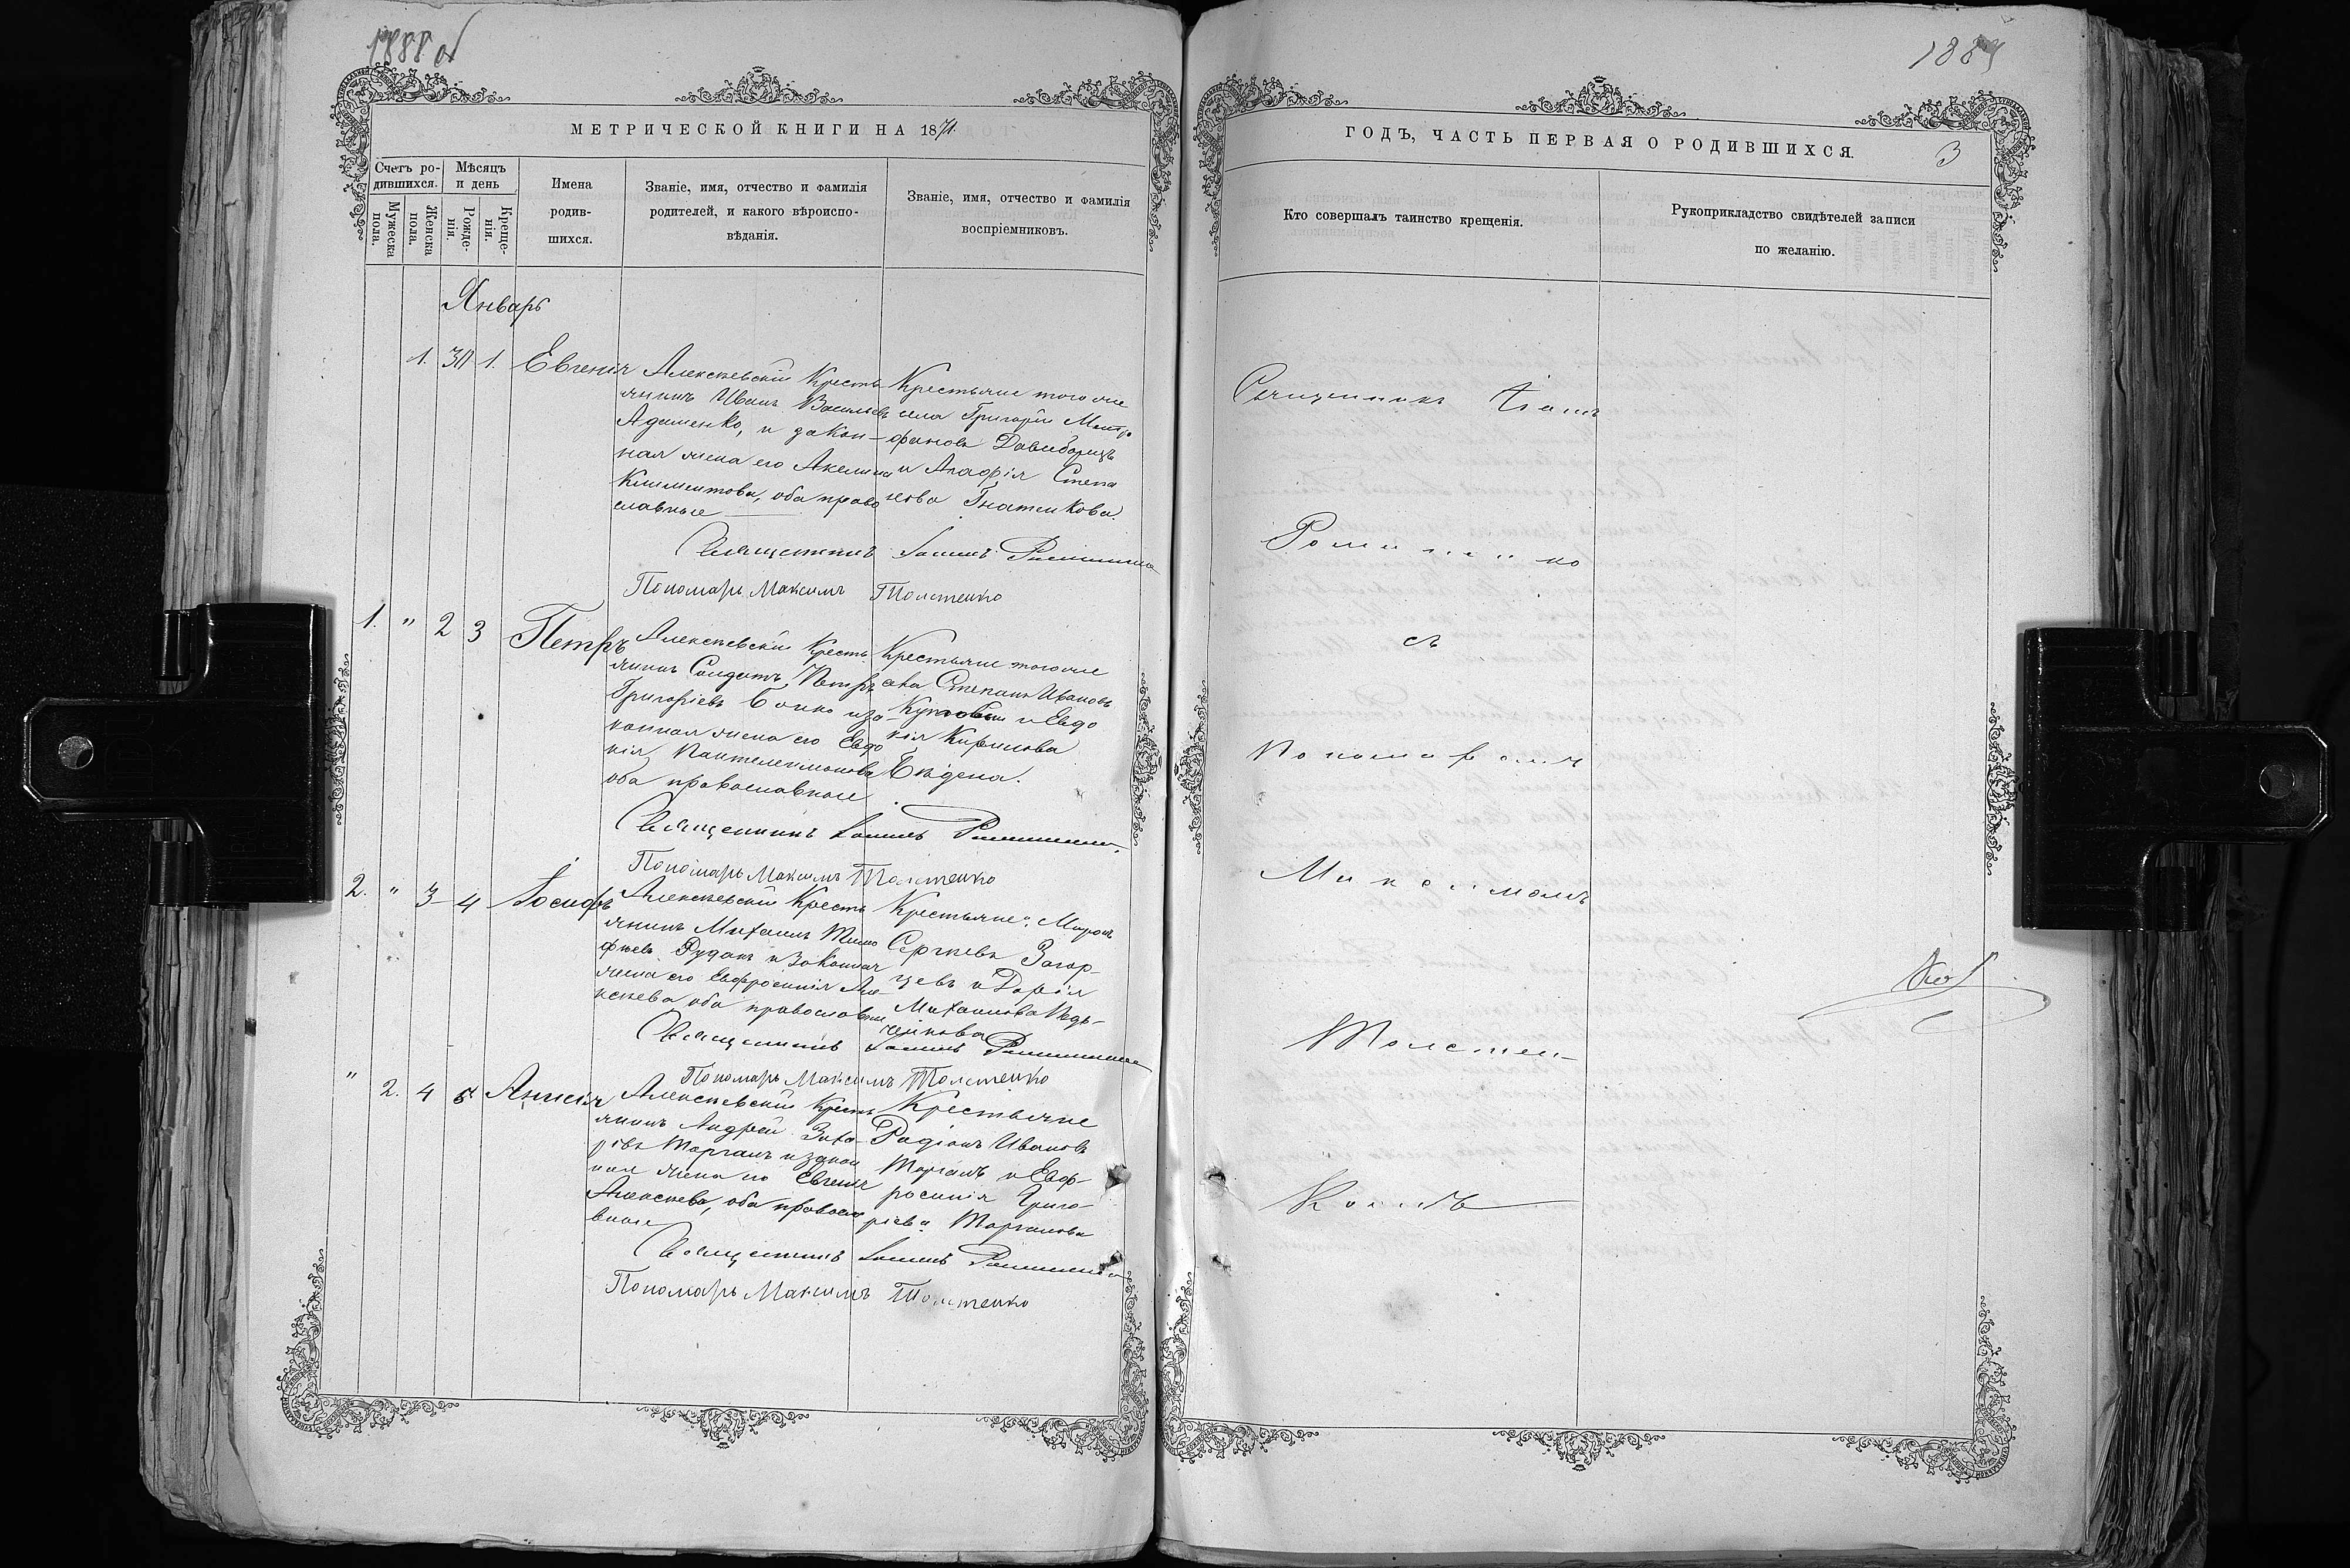 1888 об
МЕТРИЧЕСКОЙ КНИГИ НА 1871.
Счетъ ро-
дившихся.
Мужеска
пола.
Женска
пола.
Мѣсяцъ
и день
Рожде-
нія.
Креще-
нія.
Имена
родив-
шихся.
Званіе, имя, отчество и фамилія
родителей, и какого вѣроиспо-
вѣданія.
Званіе, имя, отчество и фамилія
воспріемниковъ.
Январь
1. 30 1. Евгенія
Алексѣевскій Кресть-
янинъ Иванъ Васильевъ
Адаменко, и закон-
ная жена его Акелина
Климентова, оба право
славные
Крестьяне того же
села Григорій Митро
фановъ Давидовичъ
и Агафія Степа
нова Гнатенкова.
Священникъ Іоаннъ Романенко
Пономарь Максимъ Толстенко
1. " 2 3 Петръ
Алексѣевскій Кресть
янинъ Солдатъ Петръ
Григорьевъ и за
конная жена его Евдо
кія Пантелеимонова
оба православные
Крестьяне того же
села Степанъ Ивановъ
и Евдо
кія Кирилова
Священникъ Іоаннъ Романенко
Пономарь Максимъ Толстенко
2. " 3 4 Іосифъ
Алексѣевскій Кресть
янинъ Михаилъ Тимо
фѣевъ Рудакъ и Законная
жена его Евфросинія Але-
ксѣева оба православные
Крестьяне: Миронъ
Сергѣевъ Загор-
цевъ и Дарія
Михаилова
Священникъ Іоаннъ Романенко
Пономарь Максимъ Толстенко
" 2. 4 5 Анисія
Алексѣевскій Кресть
янинъ Андрей Заха-
рівъ Морганъ и закон
ная жена его Евгенія
Алексѣева, оба правосла
вные
Крестьяне
Родіонъ Ивановъ
Морганъ и Евф-
росинія Григо-
ріева Морганова
Священникъ Іоаннъ Романенко
Пономарь Максимъ Толстенко
1889
ГОДЪ, ЧАСТЬ ПЕРВАЯ О РОДИВШИХСЯ.
3
Кто совершалъ таинство крещенія.
Рукоприкладство свидѣтелей записи
по желанію.
Священникъ Іоаннъ
Романенко
съ
Пономаремъ
Максимомъ
Толстен-
комъ